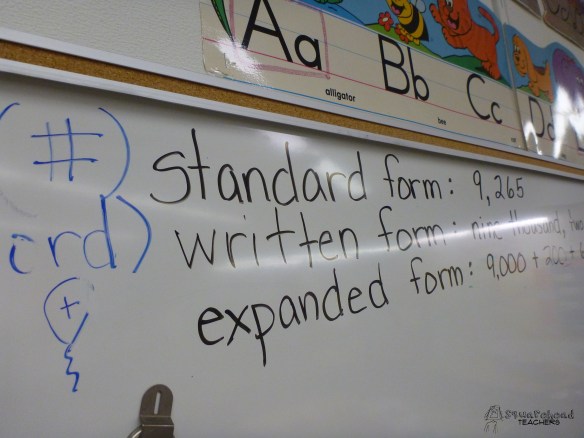 Aa Bb Cc D
alligator bee
(#) standard form: 9,265
ord) written form: nine thousand, two
(+) expanded form: 9,000 + 200 + 6
Squarehead
TEACHERS